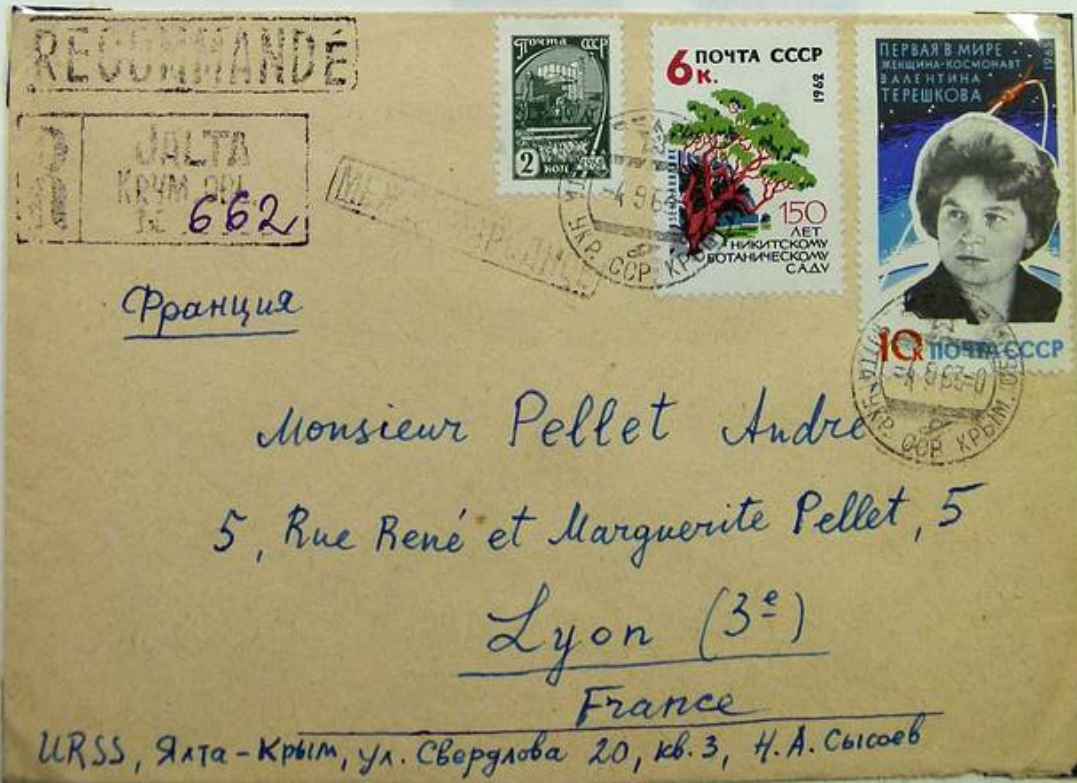 RECOMMANDÉ
R
JALTA
662
ПОЧТА СССР
2
КОП
6к. ПОЧТА СССР
1962
150
ЛЕТ
НИКИТСКОМУ
БОТАНИЧЕСКОМУ
САДУ
ПЕРВАЯ В МИРЕ
ЖЕНЩИНА-КОСМОНАВТ
ВАЛЕНТИНА
ТЕРЕШКОВА
1963
10к ПОЧТА СССР
УКР. ССР КРЫМ
ЯЛТА УКР. ССР КРЫМ.
Франция
Monsieur Pellet André
5, Rue René et Marguerite Pellet, 5
Lyon (3e)
France
URSS, Ялта-Крым, ул. Свердлова 20, кв. 3, Н. А. Сысоев